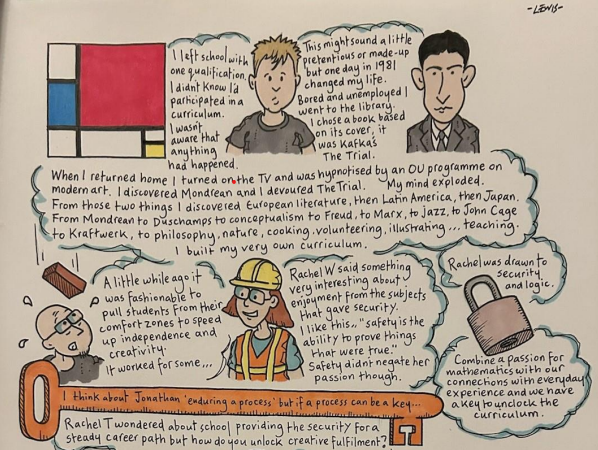 -LEWIS-
I left school with
one qualification.
I didn't know I'd
participated in a
curriculum.
I wasn't
aware that
anything
had happened.
This might sound a little
pretentious or made-up
but one day in 1981
changed my life.
Bored and unemployed I
went to the library.
I chose a book based
on its cover, it
was Kafka's
The Trial.
When I returned home I turned on the TV and was hypnotised by an OU programme on
modern art. I discovered Mondrean and I devoured The Trial. My mind exploded.
From those two things I discovered European literature, then Latin America, then Japan.
From Mondrean to Dyschamps to conceptualism to Freud, to Marx, to jazz, to John Cage
to Kraftwerk, to philosophy, nature, cooking, volunteering, illustrating... teaching.
I built my very own curriculum.
A little while ago it
was fashionable to
pull students from their
comfort zones to speed
up independence and
creativity.
It worked for some...
Rachel W said something
very interesting about
enjoyment from the subjects
that gave security.
I like this.. "safety is the
ability to prove things
that were true."
Safety didn't negate her
passion though.
Rachel was drawn to
security
and logic.
Combine a passion for
mathematics with our
connections with everyday
experience and we have
a key to unlock the
curriculum.
I think about Jonathan 'enduring a process' but if a process can be a key...
Rachel T wondered about school providing the security for a
steady career path but how do you unlock creative fulfilment?